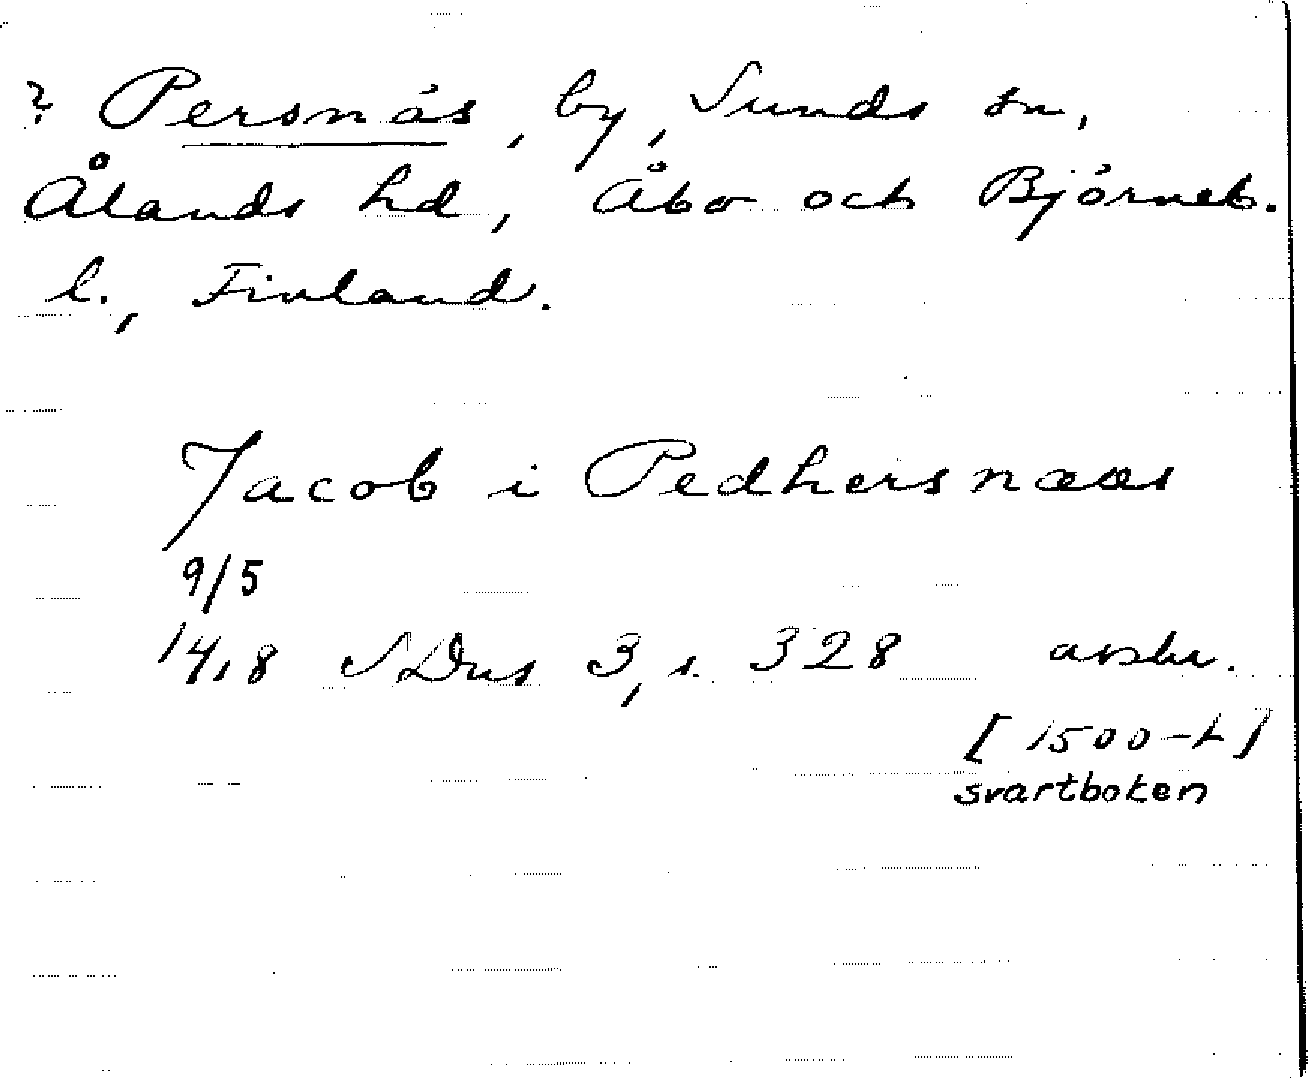 ? Persnäs, by, Sunds sn,
Ålands hd, Åbo och Björneb.
l., Finland.
Jacob i Pedhersnæss
9/5
1418 SDns 3, s. 328 avskr.
[1500-t]
svartboken